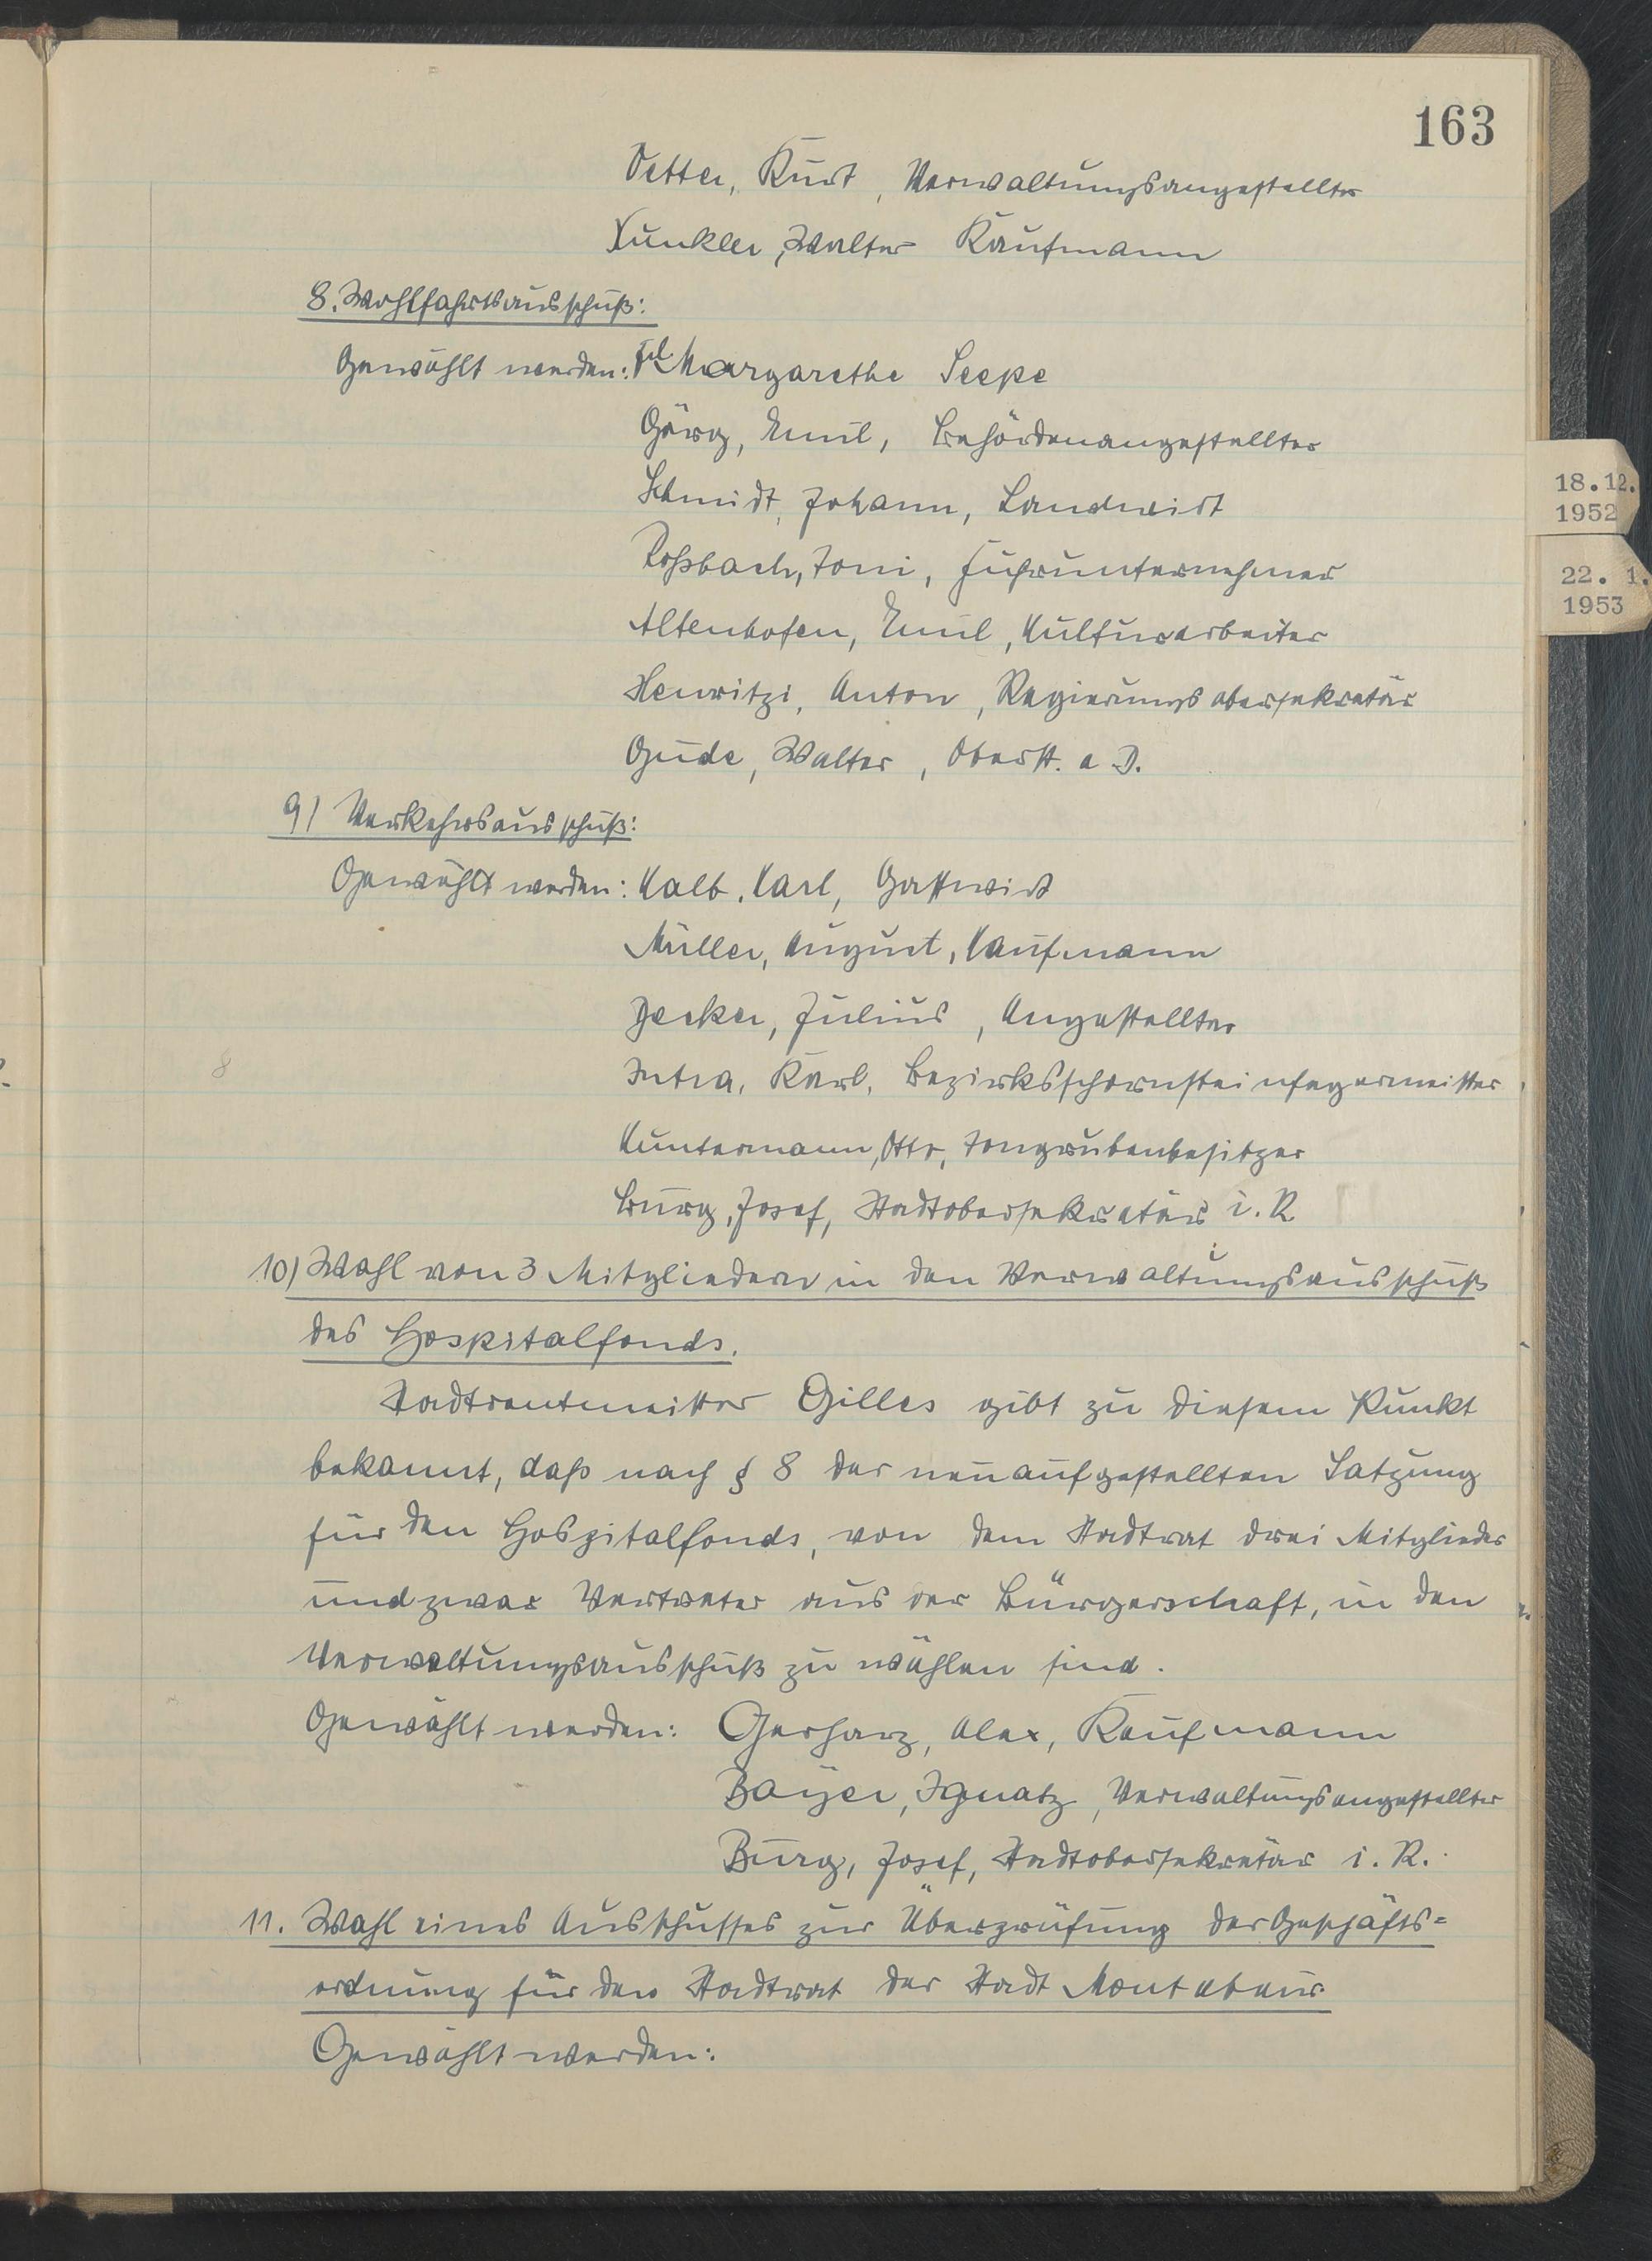 163
Vetter, Kurt, Verwaltungsangestellter
Kunkler, Walter Kaufmann
8. Wohlfahrtsausschuß:
Gewählt werden: Frl Margarethe Seepe
Görg, Emil, Behördenangestellter
Schmidt, Johann, Landwirt
Roßbach, Toni, Fuhrunternehmer
Altenhofen, Emil, Kulturarbeiter
Henritzi, Anton, Regierungsobersekretär
Gude, Walter, Oberst. a D.
9) Verkehrsausschuß:
Gewählt werden: Kalb, Karl, Gastwirt
Müller, August, Kaufmann
Decker, Julius, Angestellter
Intra, Karl, Bezirksschornsteinfegermeister
8
Kuntermann, Otto, Tongrubenbesitzer
Burg, Josef, Stadtobersekretär i. R
10) Wahl von 3 Mitgliedern in den Verwaltungsausschuß
des Hospitalfonds.
Stadtrentmeister Gilles gibt zu diesem Punkt
bekannt, daß nach § 8 der neuaufgestellten Satzung
für den Hospitalfonds, von dem Stadtrat drei Mitglieder
und zwar Vertreter aus der Bürgerschaft, in den
Verwaltungsausschuß zu wählen sind.
Gewählt werden: Gerharz, Alex, Kaufmann
Bayer, Ignatz, Verwaltungsangestellter
Burg, Josef, Stadtobersekretär i. R.
11. Wahl eines Ausschusses zur Überprüfung der Geschäfts=
ordnung für den Stadtrat der Stadt Montabaur
Gewählt werden:
18.12.
1952
22. 1.
1953